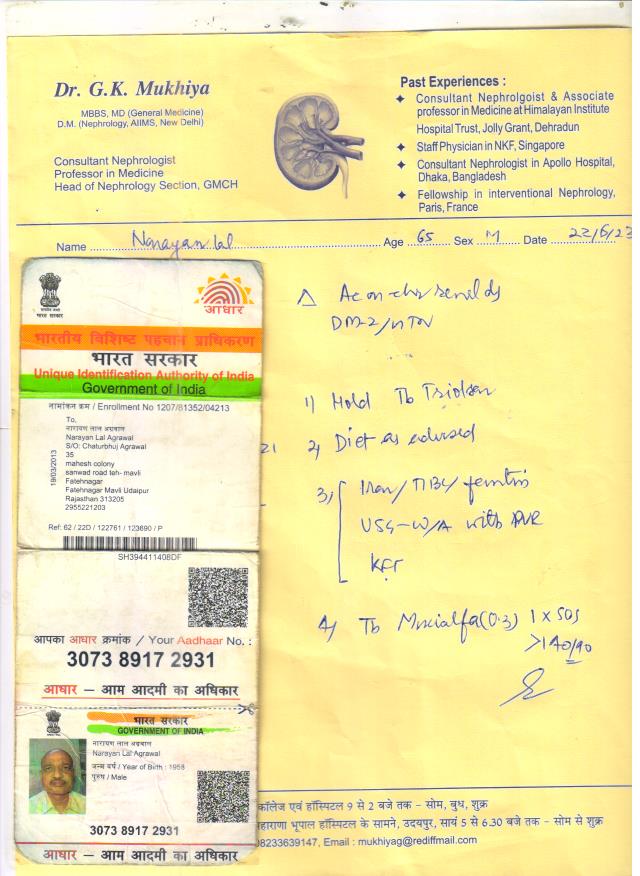 Dr. G.K. Mukhiya
MBBS, MD (General Medicine)
D.M. (Nephrology, AIIMS, New Delhi)
Consultant Nephrologist
Professor in Medicine
Head of Nephrology Section, GMCH
Past Experiences :
Consultant Nephrolgoist & Associate
professor in Medicine at Himalayan Institute
Hospital Trust, Jolly Grant, Dehradun
Staff Physician in NKF, Singapore
Consultant Nephrologist in Apollo Hospital,
Dhaka, Bangladesh
Fellowship in interventional Nephrology,
Paris, France
Name Narayan lal Age 65 Sex M Date 22/6/23
आधार
भारत सरकार
भारतीय विशिष्ट पहचान प्राधिकरण
भारत सरकार
Unique Identification Authority of India
Government of India
नामांकन क्रम / Enrollment No 1207/81352/04213
To,
नारायण लाल अग्रवाल
Narayan Lal Agrawal
S/O: Chaturbhuj Agrawal
35
mahesh colony
sanwad road teh- mavli
Fatehnagar
Fatehnagar Mavli Udaipur
Rajasthan 313205
2955221203
19/03/2013
Ref: 62 / 22D / 122761 / 123690 / P
SH394411408DF
आपका आधार क्रमांक / Your Aadhaar No. :
3073 8917 2931
आधार — आम आदमी का अधिकार
भारत सरकार
GOVERNMENT OF INDIA
नारायण लाल अग्रवाल
Narayan Lal Agrawal
जन्म वर्ष / Year of Birth : 1958
पुरुष / Male
3073 8917 2931
आधार — आम आदमी का अधिकार
Δ
DM-2/HTN
1) Hold Tb
2) Diet as advised
3) Iron/TIBC/ferritin
USG-W/A with PVR
KFT
4) Tb (0.3) 1 x SOS
>140/90
कॉलेज एवं हॉस्पिटल 9 से 2 बजे तक - सोम, बुध, शुक्र
महाराणा भूपाल हॉस्पिटल के सामने, उदयपुर, सायं 5 से 6.30 बजे तक - सोम से शुक्र
08233639147, Email : mukhiyag@rediffmail.com